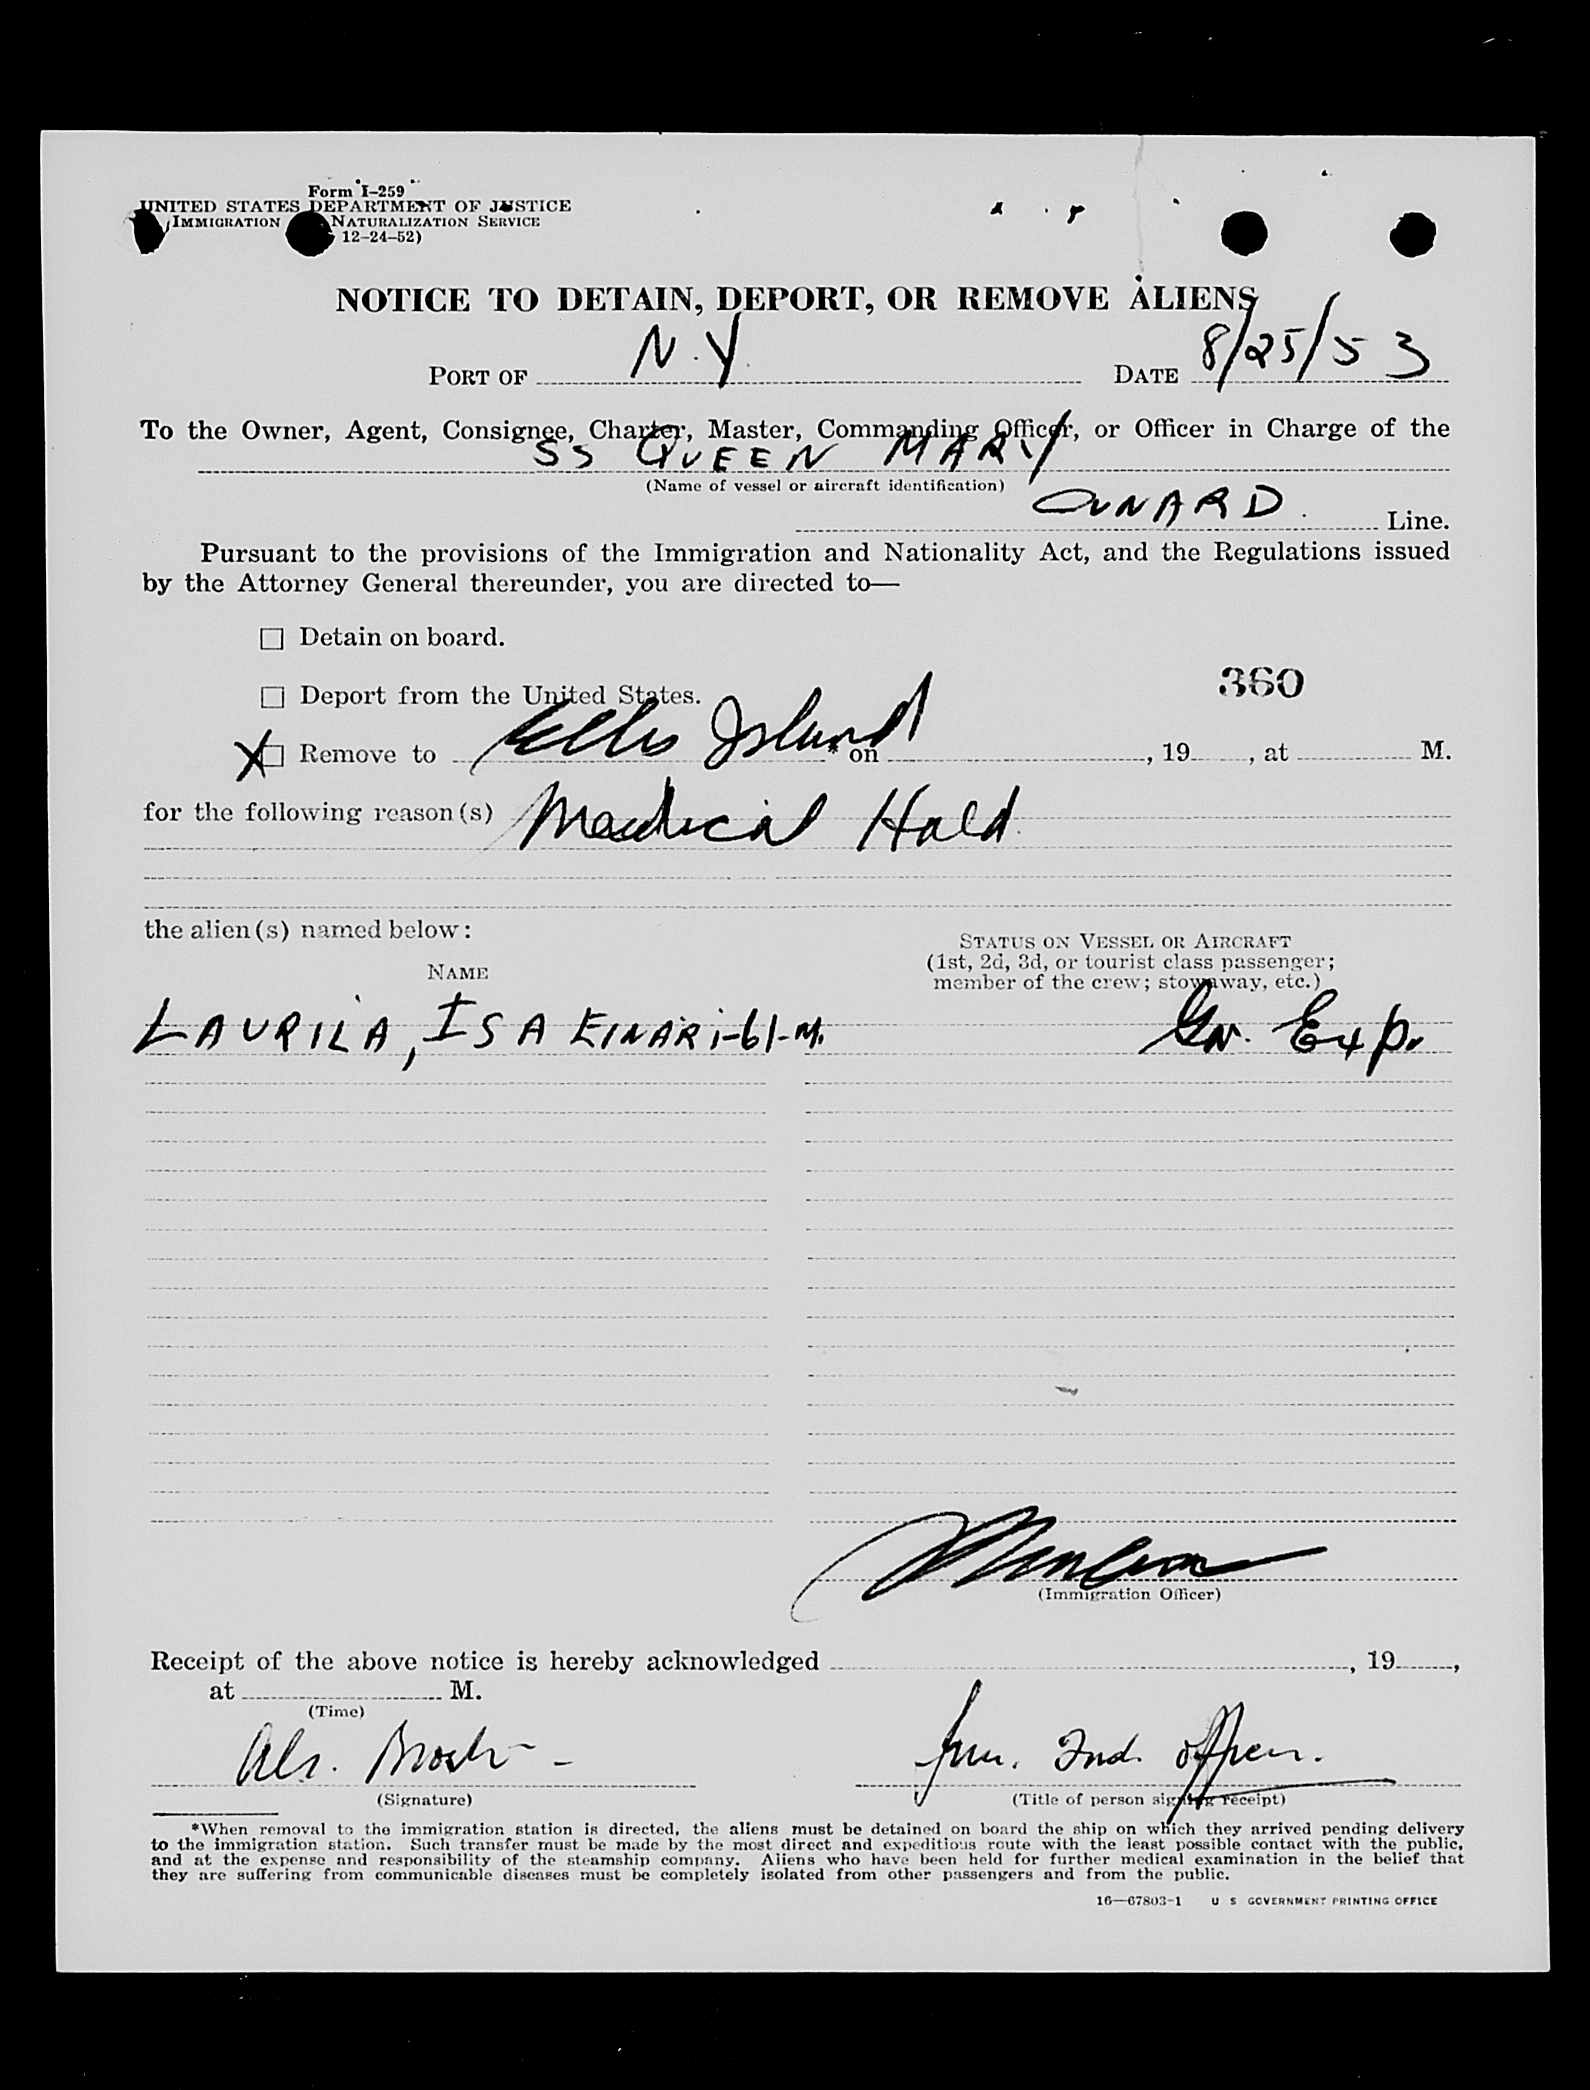 Form I-259
UNITED STATES DEPARTMENT OF JUSTICE
IMMIGRATION NATURALIZATION SERVICE
12-24-52)
NOTICE TO DETAIN, DEPORT, OR REMOVE ALIENS
PORT OF N.Y. DATE 8/25/53
To the Owner, Agent, Consignee, Charter, Master, Commanding Officer, or Officer in Charge of the
SS QUEEN MARY
(Name of vessel or aircraft identification)
CUNARD Line.
Pursuant to the provisions of the Immigration and Nationality Act, and the Regulations issued
by the Attorney General thereunder, you are directed to—
☐ Detain on board.
360
☐ Deport from the United States.
X☐ Remove to Ellis Island * on , 19 , at M.
for the following reason(s) Medical Hold
the alien(s) named below:
STATUS ON VESSEL OR AIRCRAFT
(1st, 2d, 3d, or tourist class passenger;
member of the crew; stowaway, etc.)
NAME
LAURILA, ISA EINARI-61-M. Gv. Exp.
(Immigration Officer)
Receipt of the above notice is hereby acknowledged , 19 ,
at M.
(Time)
Imm. Ind. Officer.
(Signature) (Title of person signing receipt)
*When removal to the immigration station is directed, the aliens must be detained on board the ship on which they arrived pending delivery
to the immigration station. Such transfer must be made by the most direct and expeditious route with the least possible contact with the public,
and at the expense and responsibility of the steamship company. Aliens who have been held for further medical examination in the belief that
they are suffering from communicable diseases must be completely isolated from other passengers and from the public.
16—67803-1 U S GOVERNMENT PRINTING OFFICE